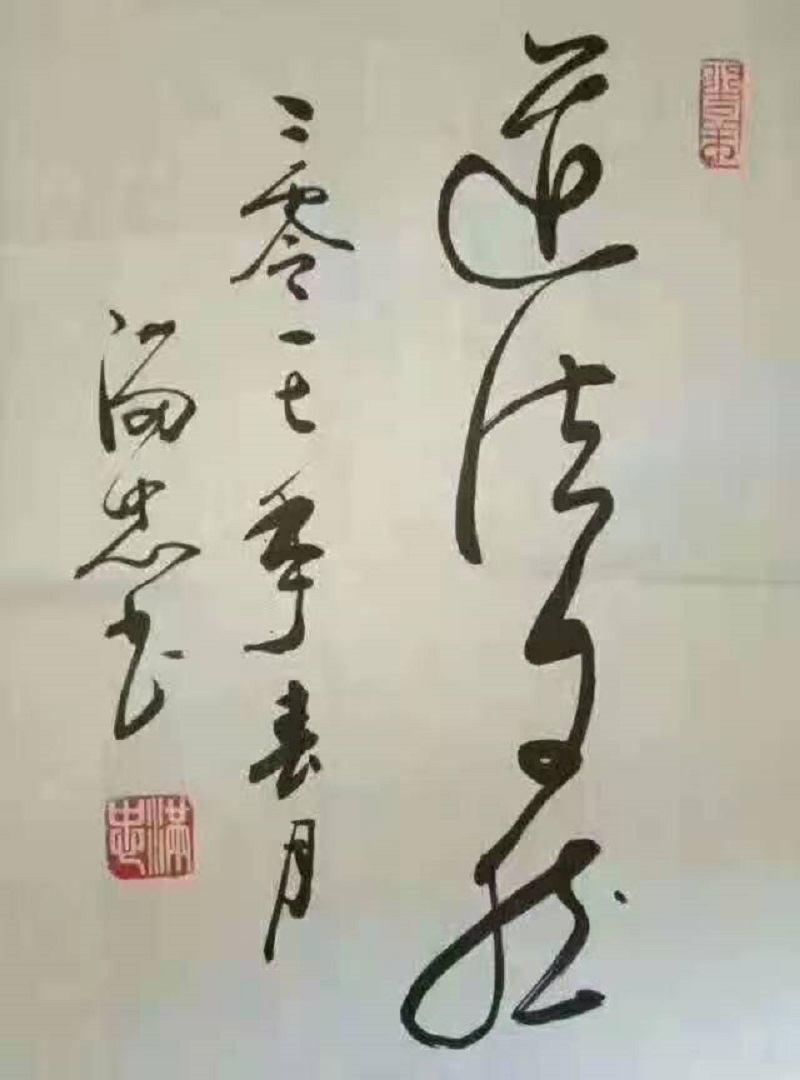 道法自然
二零一七年春月
满忠书
满忠